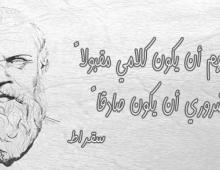 هم أن يكون كلامي مقبولاً
ضروري أن يكون صادقاً
سقراط